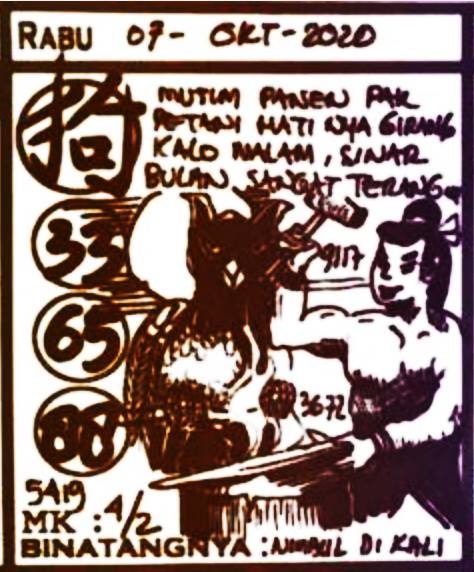 RABU 07- OKT-2020
MUTIM PANEN PAK
PETANI HATI NYA GIRANG
KALO MALAM, SINAR
BULAN SANGAT TERANG
33
9117
65
3672
88
5419
MK : 4/2
BINATANGNYA : DI KALI